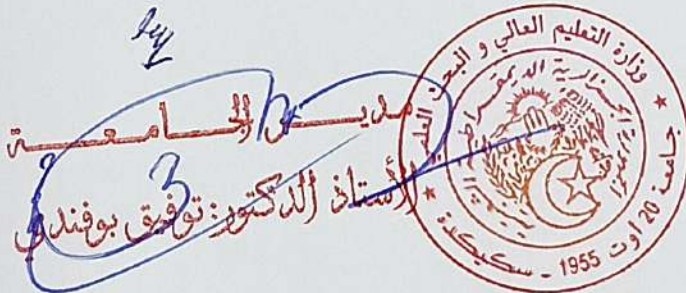 مديـــر الجـــامعـــة
الأستاذ الدكتور: توفيق بوفندي
وزارة التعليم العالي و البحث العلمي
الجمهورية الجزائرية الديمقراطية الشعبية
جامعة 20 اوت 1955 - سكيكدة